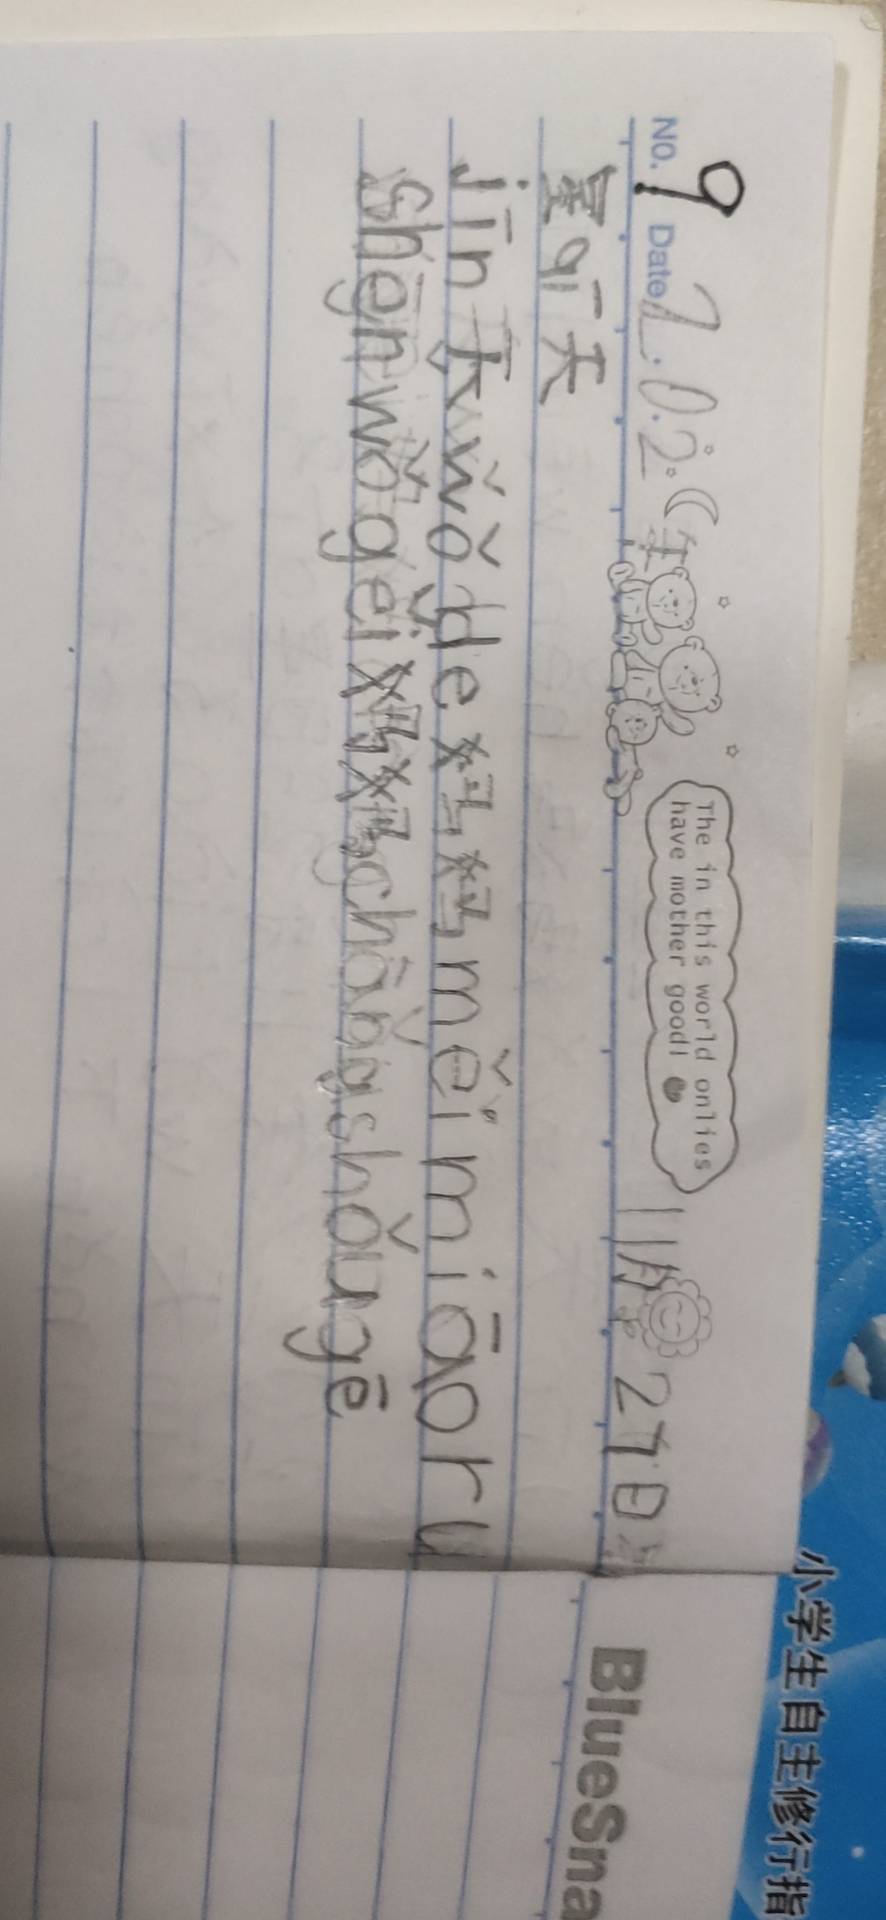 NO. 9 Date 2.0.2 年 11月 27日
The in this world onlies
have mother good!
星qī天
jīn 天 wǒ de 妈妈 měi miāo ru
shēn wǒ gěi 妈妈 chǎng shǒu gē
BlueSna
小学生自主修行指